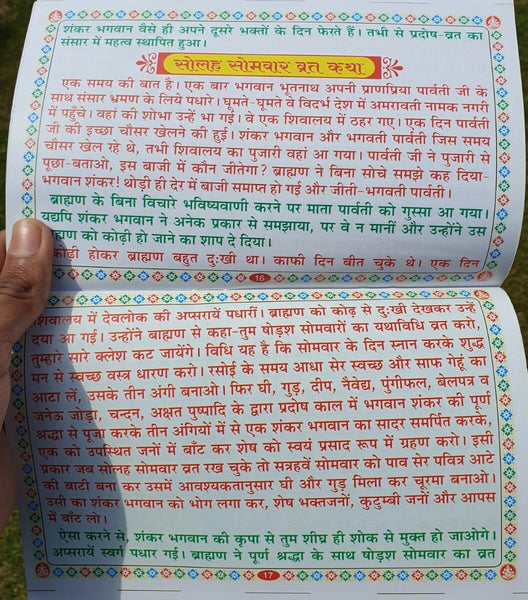 शंकर भगवान वैसे ही अपने दूसरे भक्तों के दिन फेरते हैं। तभी से प्रदोष-व्रत का
संसार में महत्व स्थापित हुआ।
सोलह सोमवार व्रत कथा
एक समय की बात है। एक बार भगवान भूतनाथ अपनी प्राणप्रिया पार्वती जी के
साथ संसार भ्रमण के लिये पधारे। घूमते-घूमते वे विदर्भ देश में अमरावती नामक नगरी
में पहुँचे। वहां की शोभा उन्हें भा गई। वे एक शिवालय में ठहर गए। एक दिन पार्वती
जी की इच्छा चौसर खेलने की हुई। शंकर भगवान और भगवती पार्वती जिस समय
चौसर खेल रहे थे, तभी शिवालय का पुजारी वहां आ गया। पार्वती जी ने पुजारी से
पूछा-बताओ, इस बाजी में कौन जीतेगा? ब्राह्मण ने बिना सोचे समझे कह दिया-
भगवान शंकर! थोड़ी ही देर में बाजी समाप्त हो गई और जीती-भगवती पार्वती।
ब्राह्मण के बिना विचारे भविष्यवाणी करने पर माता पार्वती को गुस्सा आ गया।
यद्यपि शंकर भगवान ने अनेक प्रकार से समझाया, पर वे न मानीं और उन्होंने उस
ह्मण को कोढ़ी हो जाने का शाप दे दिया।
कोढ़ी होकर ब्राह्मण बहुत दुःखी था। काफी दिन बीत चुके थे। एक दिन
16
शिवालय में देवलोक की अप्सरायें पधारीं। ब्राह्मण को कोढ़ से दुःखी देखकर उन्हें
दया आ गई। उन्होंने ब्राह्मण से कहा-तुम षोड़श सोमवारों का यथाविधि व्रत करो,
तुम्हारे सारे क्लेश कट जायेंगे। विधि यह है कि सोमवार के दिन स्नान करके शुद्ध
मन से स्वच्छ वस्त्र धारण करो। रसोई के समय आधा सेर स्वच्छ और साफ गेहूं का
आटा लें, उसके तीन अंगी बनाओ। फिर घी, गुड़, दीप, नैवेद्य, पुंगीफल, बेलपत्र व
जनेऊ जोड़ा, चन्दन, अक्षत पुष्पादि के द्वारा प्रदोष काल में भगवान शंकर की पूर्ण
श्रद्धा से पूजा करके तीन अंगियों में से एक शंकर भगवान का सादर समर्पित करके,
एक को उपस्थित जनों में बाँट कर शेष को स्वयं प्रसाद रूप में ग्रहण करो। इसी
प्रकार जब सोलह सोमवार व्रत रख चुके तो सत्रहवें सोमवार को पाव सेर पवित्र आटे
की बाटी बना कर उसमें आवश्यकतानुसार घी और गुड़ मिला कर चूरमा बनाओ।
उसी का शंकर भगवान को भोग लगा कर, शेष भक्तजनों, कुटुम्बी जनों और आपस
में बाँट लो।
ऐसा करने से, शंकर भगवान की कृपा से तुम शीघ्र ही शोक से मुक्त हो जाओगे।
अप्सरायें स्वर्ग पधार गई। ब्राह्मण ने पूर्ण श्रद्धा के साथ षोड़श सोमवार का व्रत
17